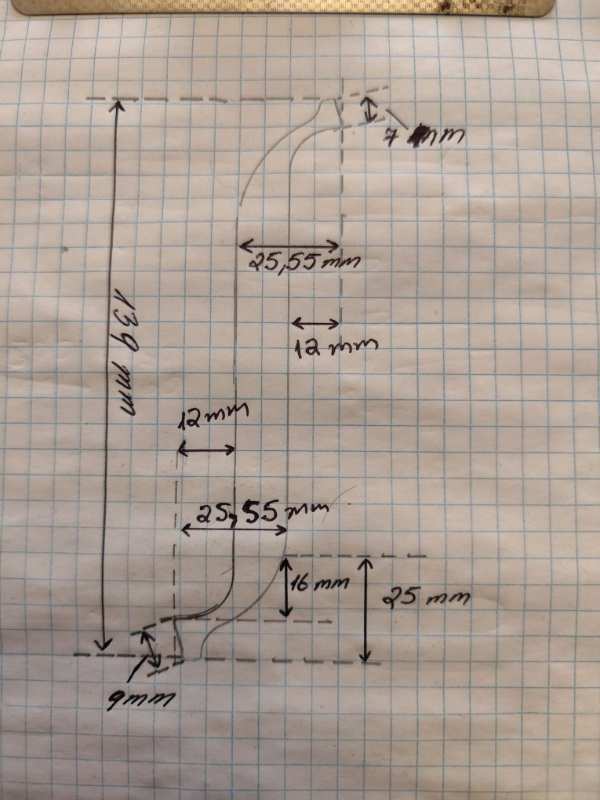 7 mm
25,55 mm
12 mm
139 mm
12 mm
25,55 mm
16 mm
25 mm
9mm